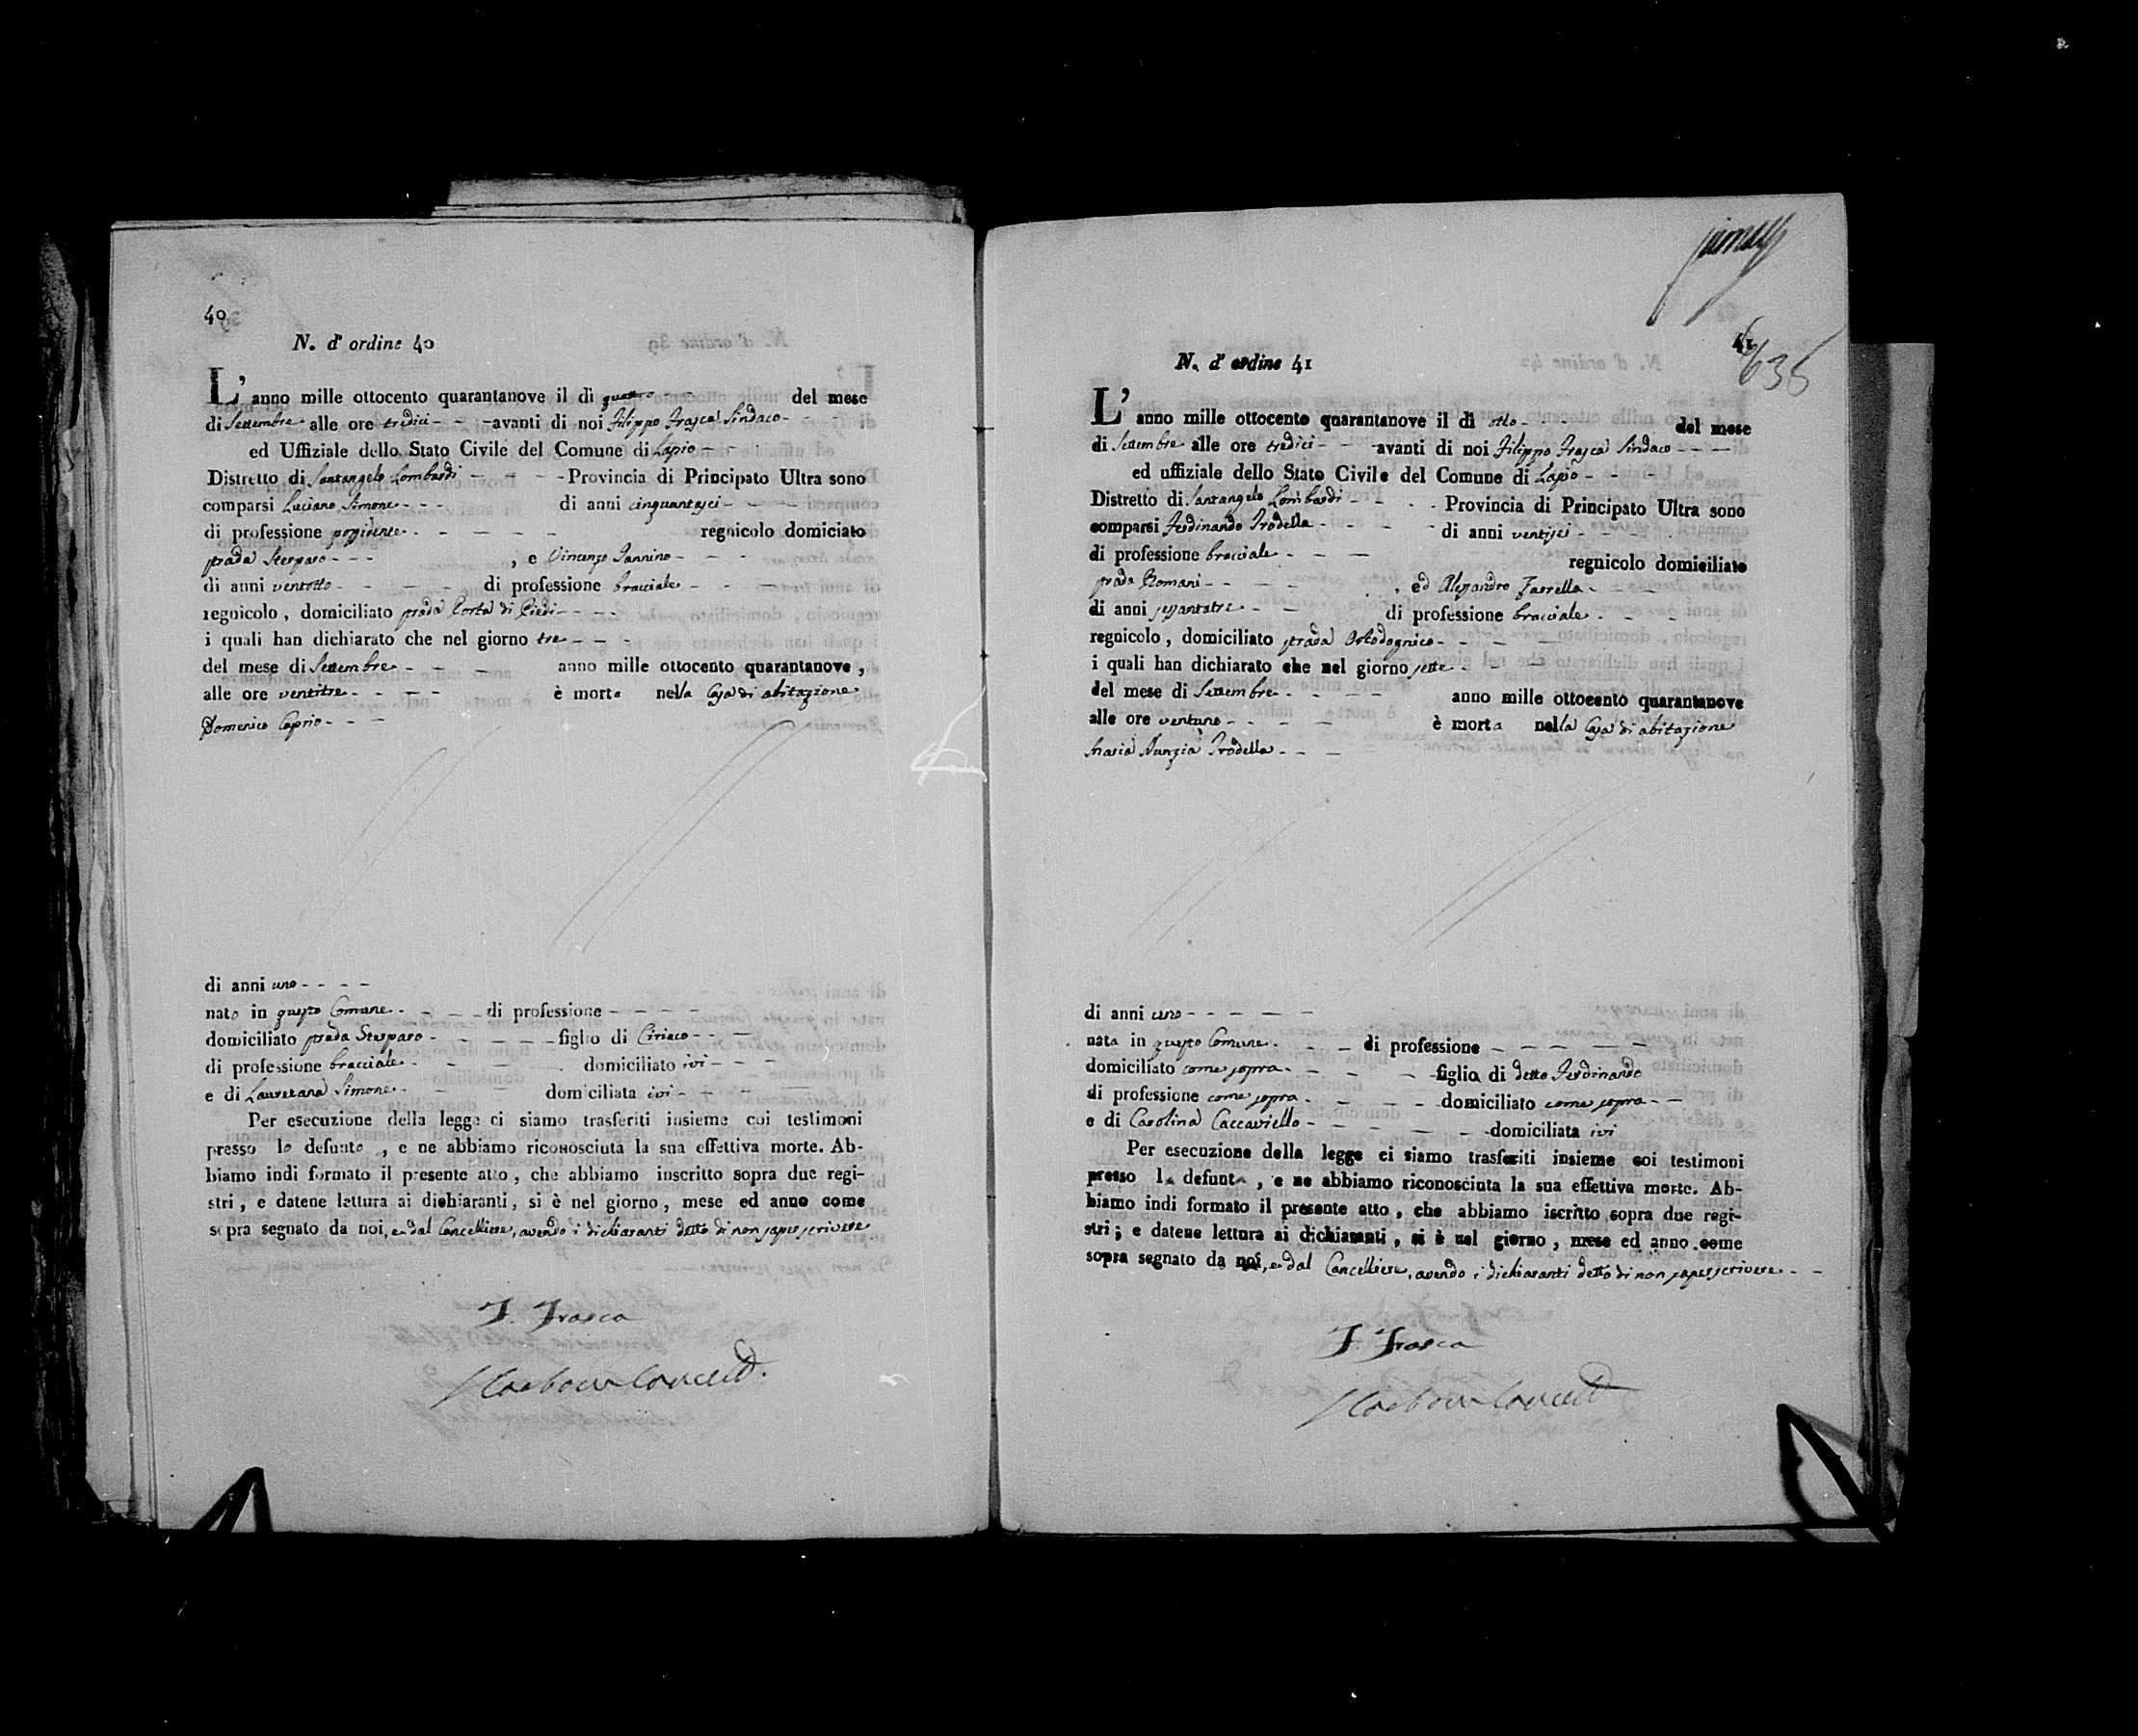 40
N. d' ordine 40
L' anno mille ottocento quarantanove il dì quattro - - del mese
di Settembre alle ore tredici - - - avanti di noi Filippo Frasca Sindaco -
ed Uffiziale dello Stato Civile del Comune di Lapio - -
Distretto di Santangelo Lombardi - - - - Provincia di Principato Ultra sono
comparsi Luciano Simone - - - di anni cinquantasei - - -
di professione possidente - - - - - regnicolo domiciato
strada Sterparo - - - , e Vincenzo Iannino - - -
di anni ventotto - - - - di professione bracciale - - -
regnicolo, domiciliato strada Porta di Piedi - - - -
i quali han dichiarato che nel giorno tre - - -
del mese di Settembre - - - anno mille ottocento quarantanove,
alle ore ventitre - - - - è morto nella Casa di abitazione
Domenico Caprio - - -
di anni uno - - - -
nato in questo Comune - - - - di professione - - - -
domiciliato strada Sterparo - - - - - figlio di Ciriaco - - -
di professione bracciale - - - - domiciliato ivi - - -
e di Lauretana Simone - - - domiciliata ivi - - -
Per esecuzione della legge ci siamo trasferiti insieme coi testimoni
presso lo defunto , e ne abbiamo riconosciuta la sua effettiva morte. Ab-
biamo indi formato il presente atto, che abbiamo inscritto sopra due regi-
stri, e datene lettura ai dichiaranti, si è nel giorno, mese ed anno come
sopra segnato da noi, e dal Cancelliere, avendo i dichiaranti detto di non saper scrivere
F. Frasca
41
636
N. d' ordine 41
L' anno mille ottocento quarantanove il dì otto - - - del mese
di Settembre alle ore tredici - - - avanti di noi Filippo Frasca Sindaco - - -
ed uffiziale dello Stato Civile del Comune di Lapio - - -
Distretto di Santangelo Lombardi - - - - Provincia di Principato Ultra sono
comparsi Ferdinando Trodella - - - - di anni ventisei - - - -
di professione bracciale - - - regnicolo domiciliato
strada Romani - - - - , ed Alessandro Zarrella - - -
di anni sessantatre - - - di professione bracciale - - -
regnicolo, domiciliato strada Ortodognico - - - -
i quali han dichiarato che nel giorno sette - - -
del mese di Settembre - - - - anno mille ottocento quarantanove
alle ore ventuno - - - - è morta nella Casa di abitazione
Maria Nunzia Trodella - - -
di anni uno - - - - -
nata in questo Comune - - - di professione - - - - -
domiciliato come sopra - - - - - figlia di detto Ferdinando
di professione come sopra - - - - - domiciliato come sopra - -
e di Carolina Caccaviello - - - - - - domiciliata ivi
Per esecuzione della legge ci siamo trasferiti insieme coi testimoni
presso la defunta , e ne abbiamo riconosciuta la sua effettiva morte. Ab-
biamo indi formato il presente atto, che abbiamo iscritto sopra due regi-
stri; e datene lettura ai dichiaranti, si è nel giorno, mese ed anno come
sopra segnato da noi, e dal Cancelliere, avendo i dichiaranti detto di non saper scrivere - -
F. Frasca